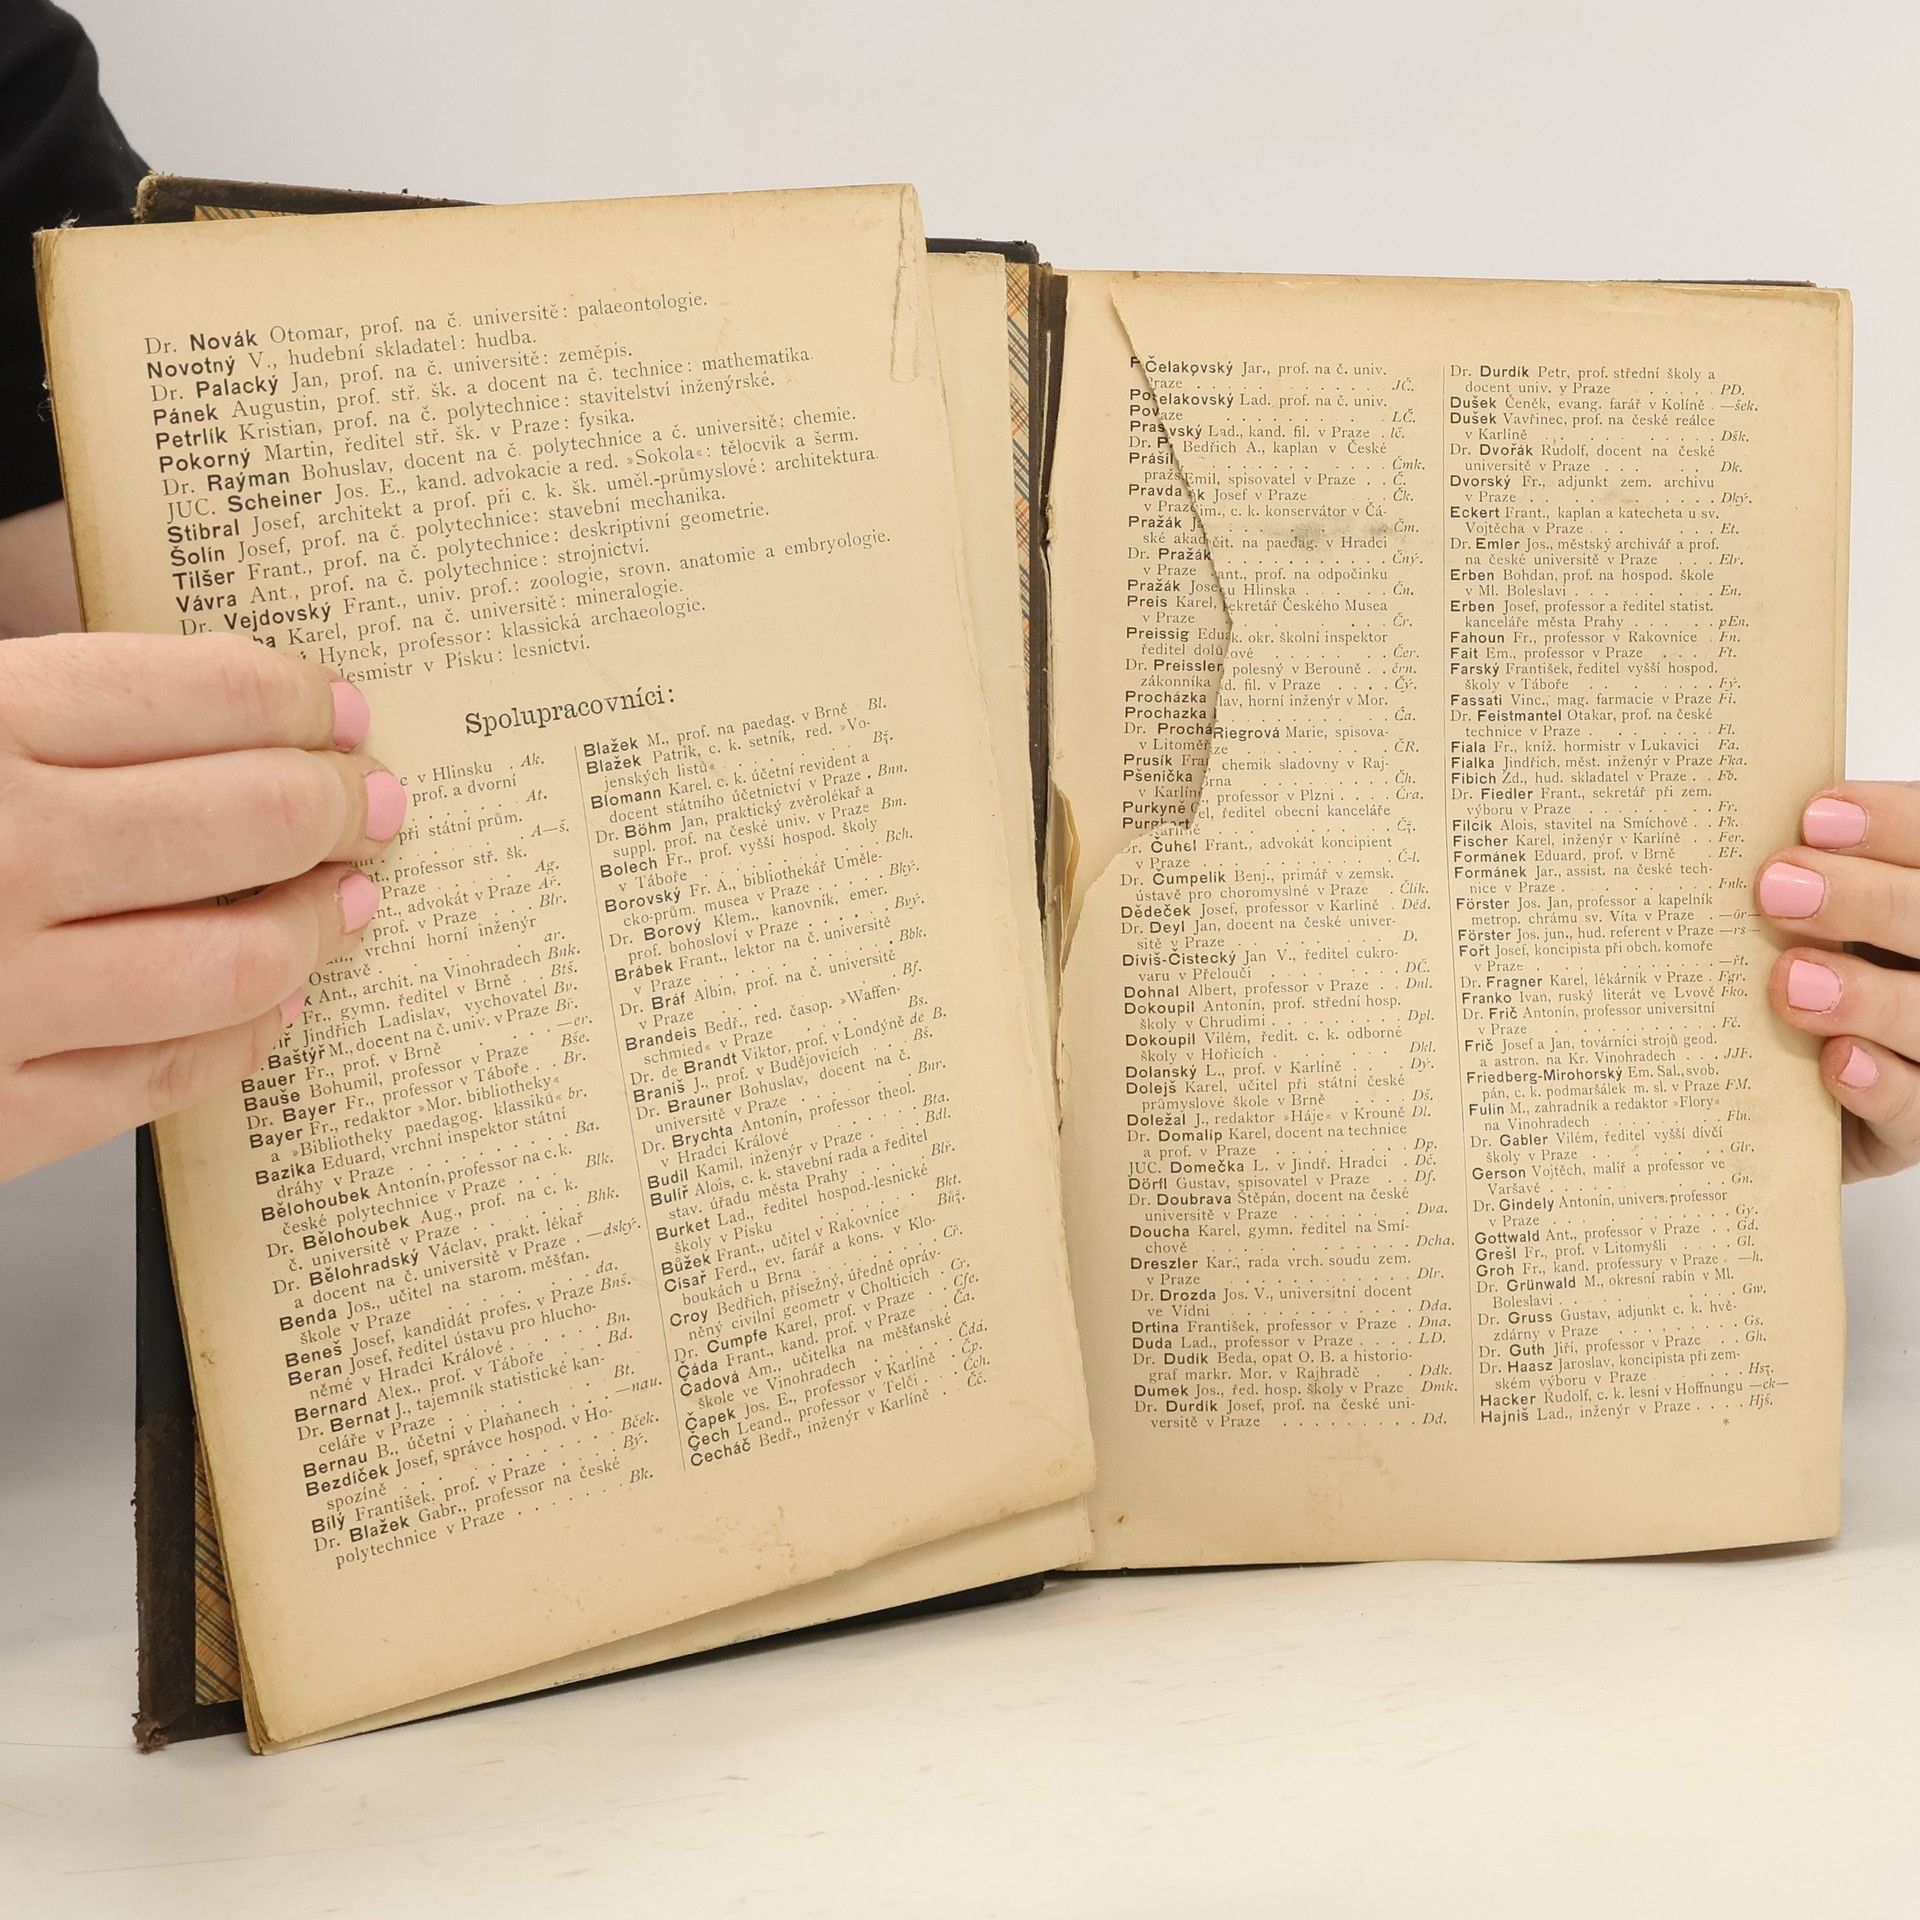 Dr. Novák Otomar, prof. na č. universitě: palaeontologie.
Novotný V., hudební skladatel: hudba.
Dr. Palacký Jan, prof. na č. universitě: zeměpis.
Pánek Augustin, prof. stř. šk. a docent na č. technice: mathematika.
Petrlík Kristian, prof. na č. polytechnice: stavitelství inženýrské.
Pokorný Martin, ředitel stř. šk. v Praze: fysika.
Dr. Raýman Bohuslav, docent na č. polytechnice a č. universitě: chemie.
JUC. Scheiner Jos. E., kand. advokacie a red. »Sokola«: tělocvik a šerm.
Stibral Josef, architekt a prof. při c. k. šk. uměl.-průmyslové: architektura.
Šolín Josef, prof. na č. polytechnice: stavební mechanika.
Tilšer Frant., prof. na č. polytechnice: deskriptivní geometrie.
Vávra Ant., prof. na č. polytechnice: strojnictví.
Dr. Vejdovský Frant., univ. prof.: zoologie, srovn. anatomie a embryologie.
ba Karel, prof. na č. universitě: mineralogie.
Hynek, professor: klassická archaeologie.
lesmistr v Písku: lesnictví.
Spolupracovníci:
c v Hlinsku . Ak.
prof. a dvorní
. . . . . At.
při státní prům.
. . . . . A—š.
nt., professor stř. šk.
Praze . . . . . Ag.
nt., advokát v Praze Ař.
, prof. v Praze . . . Blr.
, vrchní horní inženýr
Ostravě . . . . . . ar.
k Ant., archit. na Vinohradech Bnk.
Fr., gymn. ředitel v Brně . Btš.
íř, Jindřich Ladislav, vychovatel Bv.
. Baštýř M., docent na č. univ. v Praze Bř.
Bauer Fr., prof. v Brně . . . —er.
Bauše Bohumil, professor v Praze Bše.
Dr. Bayer Fr., professor v Táboře . . Br.
Bayer Fr., redaktor »Mor. bibliotheky«
a »Bibliotheky paedagog. klassiků« br.
Bazika Eduard, vrchní inspektor státní
dráhy v Praze . . . . . . . Ba.
Bělohoubek Antonín, professor na c. k.
české polytechnice v Praze . . . Blk.
Dr. Bělohoubek Aug., prof. na c. k.
č. universitě v Praze . . . . . Bhk.
Dr. Bělohradský Václav, prakt. lékař
a docent na č. universitě v Praze . —dský.
Benda Jos., učitel na starom. měšťan.
škole v Praze . . . . . . . da.
Beneš Josef, kandidát profes. v Praze Bnš.
Beran Josef, ředitel ústavu pro hlucho-
němé v Hradci Králové . . . . Bn.
Bernard Alex., prof. v Táboře . . Bd.
Dr. Bernat J., tajemník statistické kan-
celáře v Praze . . . . . . . Bt.
Bernau B., účetní v Plaňanech . —nau.
Bezdíček Josef, správce hospod. v Ho-
spozíně . . . . . . . . Bček.
Bílý František, prof. v Praze . . . Bý.
Dr. Blažek Gabr., professor na české
polytechnice v Praze . . . . . . Bk.
Blažek M., prof. na paedag. v Brně Bl.
Blažek Patrik, c. k. setník, red. »Vo-
jenských listů« . . . . . . . Bž.
Blomann Karel, c. k. účetní revident a
docent státního účetnictví v Praze . Bnn.
Dr. Böhm Jan, praktický zvěrolékař a
suppl. prof. na české univ. v Praze Bm.
Bolech Fr., prof. vyšší hospod. školy
v Táboře . . . . . . . . Bch.
Borovský Fr. A., bibliothekář Uměle-
cko-prům. musea v Praze . . . . Bký.
Dr. Borový Klem., kanovník, emer.
prof. bohosloví v Praze . . . . . Bvý.
Brábek Frant., lektor na č. universitě
v Praze . . . . . . . . Bbk.
Dr. Bráf Albin, prof. na č. universitě
v Praze . . . . . . . . . Bf.
Brandeis Bedř., red. časop. »Waffen-
schmied« v Praze . . . . . . . Bs.
Dr. de Brandt Viktor, prof. v Londýně de B.
Braniš J., prof. v Budějovicích . . . Bš.
Dr. Brauner Bohuslav, docent na č.
universitě v Praze . . . . . . Bnr.
Dr. Brychta Antonín, professor theol.
v Hradci Králové . . . . . . Bta.
Budil Kamil, inženýr v Praze . . . Bdl.
Bulíř Alois, c. k. stavební rada a ředitel
stav. úřadu města Prahy . . . . Blř.
Burket Lad., ředitel hospod.-lesnické
školy v Písku . . . . . . . Bkt.
Bůžek Frant., učitel v Rakovníce . . Bůž.
Císař Ferd., ev. farář a kons. v Klo-
boukách u Brna . . . . . . . Cř.
Croy Bedřich, přísežný, úředně opráv-
něný civilní geometr v Cholticích . Cr.
Dr. Cumpfe Karel, prof. v Praze . . Cfe.
Čáda Frant., kand. prof. v Praze . . Ča.
Čadová Am., učitelka na měšťanské
škole ve Vinohradech . . . . . Čdá.
Čapek Jos. E., professor v Karlíně . Čp.
Čech Leand., professor v Telči . . . Čch.
Čecháč Bedř., inženýr v Karlíně . . Čč.
Pov
Pras
Dr. P
Prášil
pražs
Pravda
v Praz
Pražák Ja
ské akad
Dr. Pražák
v Praze
Pražák Jose
Preis Karel,
v Praze
Preissig Edu
ředitel dolů
Dr. Preissler
zákonníka
Procházka
Prochazka
Dr. Prochá
v Litoměř
Prusík Fra
Pšenička
v Karlín
Purkyně
Purghart
Čelakovský Jar., prof. na č. univ.
Praze . . . . . . . . . JČ.
elakovský Lad. prof. na č. univ.
aze . . . . . . . . . LČ.
vský Lad., kand. fil. v Praze . lč.
Bedřich A., kaplan v České
. . . . . . . . . Čmk.
Emil, spisovatel v Praze . . Č.
k Josef v Praze . . . . . Čk.
im., c. k. konservátor v Čá-
. . . . . . . . . Čm.
čit. na paedag. v Hradci
. . . . . . . . . Čný.
ant., prof. na odpočinku
u Hlinska . . . . . . Čn.
ekretář Českého Musea
. . . . . . . . . Čr.
k. okr. školní inspektor
ové . . . . . . . Čer.
polesný v Berouně . . črn.
d. fil. v Praze . . . . Čý.
lav, horní inženýr v Mor.
. . . . . . . . . Ča.
Riegrová Marie, spisova-
ze . . . . . . . . ČR.
chemik sladovny v Raj-
Brna . . . . . . . Čh.
, professor v Plzni . . . Čra.
el, ředitel obecní kanceláře
arlíně . . . . . . . Čž.
Dr. Čuhel Frant., advokát koncipient
v Praze . . . . . . . . Č-l.
Dr. Čumpelík Benj., primář v zemsk.
ústavě pro choromyslné v Praze . Člík.
Dědeček Josef, professor v Karlíně . Déd.
Dr. Deyl Jan, docent na české univer-
sitě v Praze . . . . . . . D.
Diviš-Čistecký Jan V., ředitel cukro-
varu v Přelouči . . . . . . DČ.
Dohnal Albert, professor v Praze . . Dnl.
Dokoupil Antonín, prof. střední hosp.
školy v Chrudimi . . . . . . Dpl.
Dokoupil Vilém, ředit. c. k. odborné
školy v Hořicích . . . . . . Dkl.
Dolanský L., prof. v Karlíně . . . Dý.
Dolejš Karel, učitel při státní české
průmyslové škole v Brně . . . . Dš.
Doležal J., redaktor »Háje« v Krouně Dl.
Dr. Domalíp Karel, docent na technice
a prof. v Praze . . . . . . . Dp.
JUC. Domečka L. v Jindř. Hradci . Dč.
Dörfl Gustav, spisovatel v Praze . . Df.
Dr. Doubrava Štěpán, docent na české
universitě v Praze . . . . . . Dva.
Doucha Karel, gymn. ředitel na Smí-
chově . . . . . . . . . Dcha.
Dreszler Kar., rada vrch. soudu zem.
v Praze . . . . . . . . . Dlr.
Dr. Drozda Jos. V., universitní docent
ve Vídni . . . . . . . . . Dda.
Drtina František, professor v Praze . Dna.
Duda Lad., professor v Praze . . . LD.
Dr. Dudík Beda, opat O. B. a historio-
graf markr. Mor. v Rajhradě . . . Ddk.
Dumek Jos., řed. hosp. školy v Praze Dmk.
Dr. Durdík Josef, prof. na české uni-
versitě v Praze . . . . . . . Dd.
Dr. Durdík Petr, prof. střední školy a
docent univ. v Praze . . . . . PD.
Dušek Čeněk, evang. farář v Kolíně . —šek.
Dušek Vavřinec, prof. na české reálce
v Karlíně . . . . . . . . Dšk.
Dr. Dvořák Rudolf, docent na české
universitě v Praze . . . . . . Dk.
Dvorský Fr., adjunkt zem. archivu
v Praze . . . . . . . . . Dký.
Eckert Frant., kaplan a katecheta u sv.
Vojtěcha v Praze . . . . . . . Et.
Dr. Emler Jos., městský archivář a prof.
na české universitě v Praze . . . Elr.
Erben Bohdan, prof. na hospod. škole
v Ml. Boleslavi . . . . . . . En.
Erben Josef, professor a ředitel statist.
kanceláře města Prahy . . . . pEn.
Fahoun Fr., professor v Rakovníce . Fn.
Fait Em., professor v Praze . . . Ft.
Farský František, ředitel vyšší hospod.
školy v Táboře . . . . . . . Fý.
Fassati Vinc., mag. farmacie v Praze Fi.
Dr. Feistmantel Otakar, prof. na české
technice v Praze . . . . . . . Fl.
Fiala Fr., kníž. hormistr v Lukavici Fa.
Fialka Jindřich, měst. inženýr v Praze Fka.
Fibich Zd., hud. skladatel v Praze . . Fb.
Dr. Fiedler Frant., sekretář při zem.
výboru v Praze . . . . . . . Fr.
Filcík Alois, stavitel na Smíchově . . Fk.
Fischer Karel, inženýr v Karlíně . . Fer.
Formánek Eduard, prof. v Brně . . EF.
Formánek Jar., assist. na české tech-
nice v Praze . . . . . . . . Fnk.
Förster Jos. Jan, professor a kapelník
metrop. chrámu sv. Víta v Praze . —ór—
Förster Jos. jun., hud. referent v Praze —rs—
Fořt Josef, koncipista při obch. komoře
v Praze . . . . . . . . . —řt.
Dr. Fragner Karel, lékárník v Praze . Fgr.
Franko Ivan, ruský literát ve Lvově Fko.
Dr. Frič Antonín, professor universitní
v Praze . . . . . . . . . Fč.
Frič Josef a Jan, továrníci strojů geod.
a astron. na Kr. Vinohradech . . . JJF.
Friedberg-Mirohorský Em. Sal., svob.
pán, c. k. podmaršálek m. sl. v Praze FM.
Fulín M., zahradník a redaktor »Flory«
na Vinohradech . . . . . . . Fln.
Dr. Gabler Vilém, ředitel vyšší dívčí
školy v Praze . . . . . . . . Glr.
Gerson Vojtěch, malíř a professor ve
Varšavě . . . . . . . . . Gn.
Dr. Gindely Antonín, univers. professor
v Praze . . . . . . . . . Gy.
Gottwald Ant., professor v Praze . . Gd.
Grešl Fr., prof. v Litomyšli . . . Gl.
Groh Fr., kand. professury v Praze . —h.
Dr. Grünwald M., okresní rabín v Ml.
Boleslavi . . . . . . . . . Gw.
Dr. Gruss Gustav, adjunkt c. k. hvě-
zdárny v Praze . . . . . . . Gs.
Dr. Guth Jiří, professor v Praze . . Gh.
Dr. Haasz Jaroslav, koncipista při zem-
ském výboru v Praze . . . . . Hsz.
Hacker Rudolf, c. k. lesní v Hoffnungu —ck—
Hajniš Lad., inženýr v Praze . . . . Hjš.
*